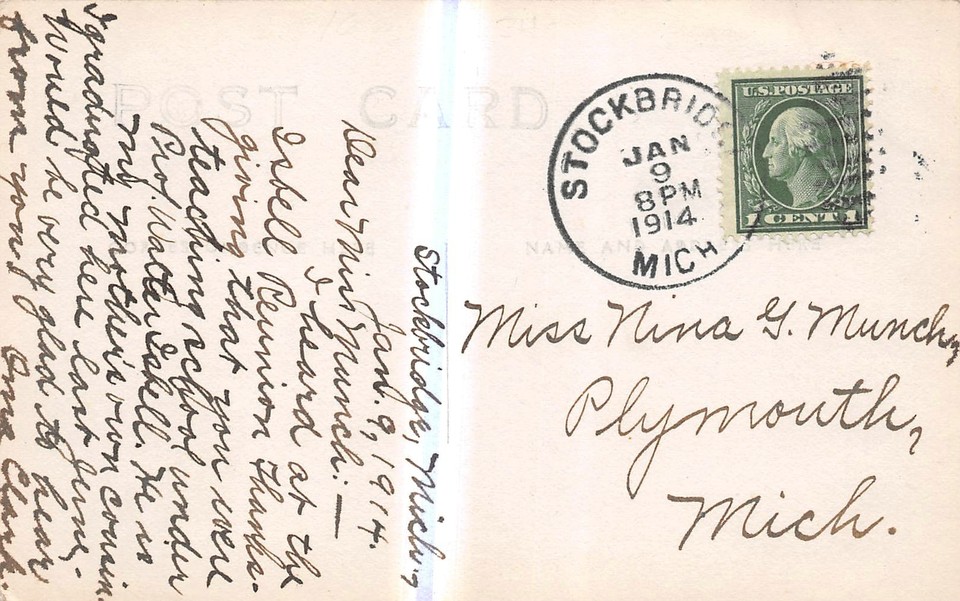 POST CARD
CORRESPONDENCE HERE
NAME AND ADDRESS HERE
Stockbridge, Mich.,
Jan. 9, 1914.
Dear Miss Munch:—
I heard at the
Isbell Reunion Thanks-
giving that you were
teaching school under
Prof. Walter Isbell. He is
my mother's own cousin.
I graduated here last June.
Would be very glad to hear
from you. Oma Clark.
STOCKBRIDGE
JAN
9
8 PM
1914
MICH
U.S. POSTAGE
1 CENT 1
Miss Nina G. Munch,
Plymouth,
Mich.